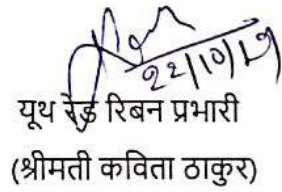 22/10/19
यूथ रेड रिबन प्रभारी
(श्रीमती कविता ठाकुर)